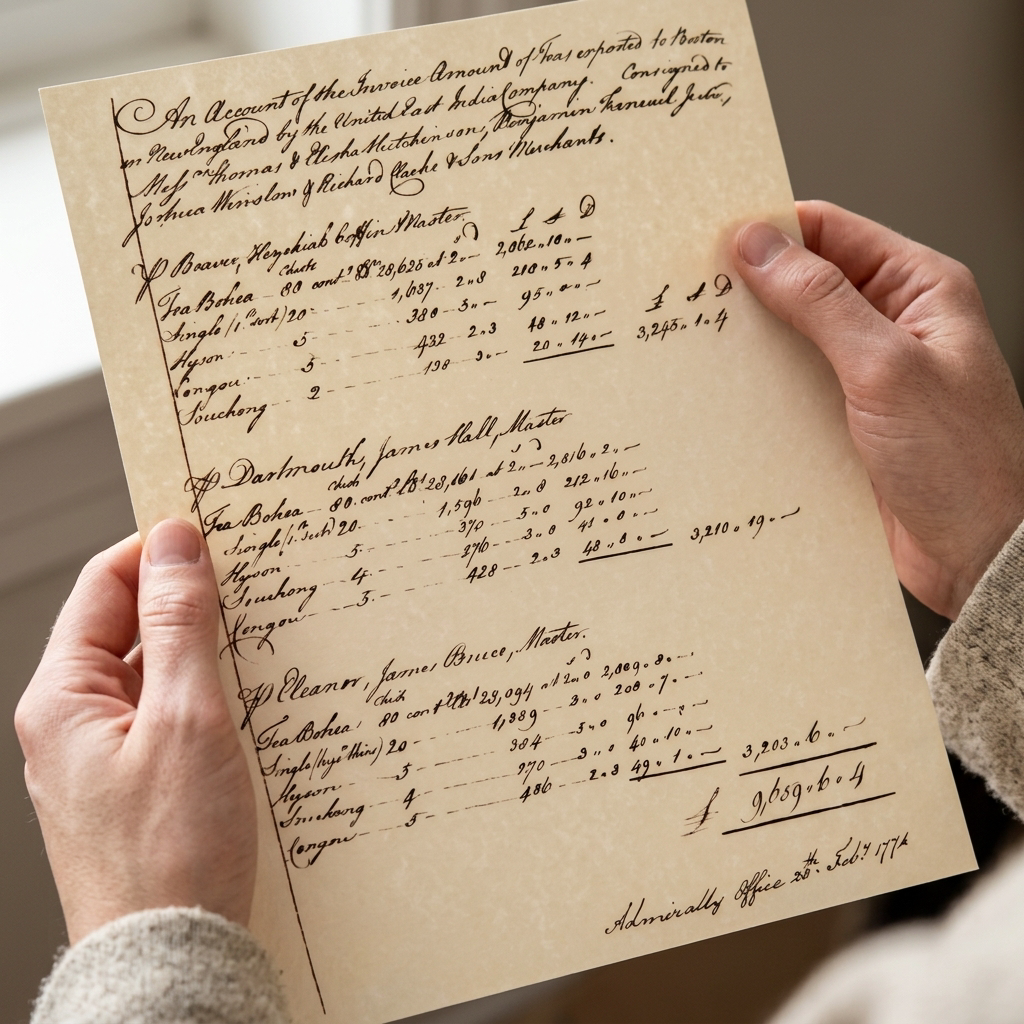 An Account of the Invoice Amount of Teas exported to Boston
in New England by the United East India Company. Consigned to
Mess.rs Thomas & Elisha Hutchinson, Benjamin Faneuil Jun.r,
Joshua Winslow & Richard Clarke & Sons Merchants.
Beaver, Hezekiah Coffin Master. £ s D
Tea Bohea 80 chests cont.g lbs 28,625 at 2 „ — 2,062 „ 10 „ —
Singlo (1.st sort) 20 1,637 2 „ 8 210 „ 5 „ 4
Hyson 5 380 5 „ — 95 „ „ —
Congou 5 432 2 „ 3 48 „ 12 „ — £ s D
Souchong 2 138 3 „ — 20 „ 14 „ — 3,245 „ 1 „ 4
Dartmouth, James Hall, Master
Tea Bohea 80 chests cont.g lbs 23,161 at 2 „ — 2,816 „ 2 „ —
Singlo (1.st sort) 20 1,596 2 „ 8 212 „ 16 „ —
Hyson 5 370 5 „ 0 92 „ 10 „ —
Souchong 4 276 3 „ 0 41 „ 0 „ —
Congou 3 428 2 „ 3 48 „ 8 „ — 3,210 „ 19 „ —
Eleanor, James Bruce, Master.
Tea Bohea 80 chests cont.g lbs 23,094 at 2 „ 0 2,809 „ 8 „ —
Singlo 20 1,389 3 „ 0 208 „ 7 „ —
Hyson 5 384 5 „ 0 96 „ — „ —
Souchong 4 270 3 „ 0 40 „ 10 „ —
Congou 5 436 2 „ 3 49 „ 1 „ — 3,203 „ 6 „ —
£ 9,659 „ 6 „ 4
Admiralty Office 28.th Feb.y 1774